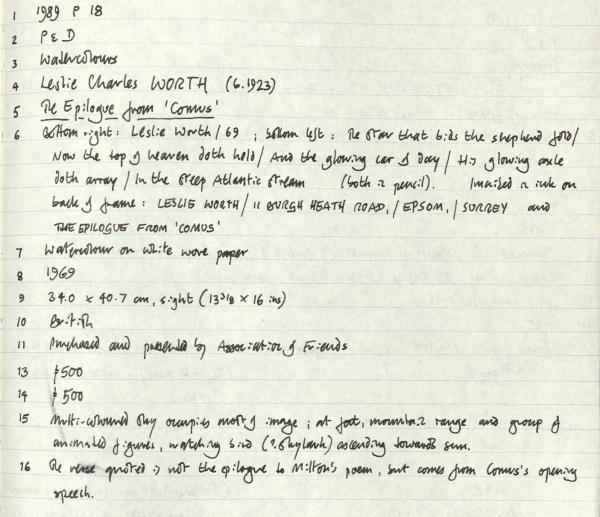 1 1989 P 18
2 P & D
3 Watercolours
4 Leslie Charles WORTH (b.1923)
5 The Epilogue from 'Comus'
6 Bottom right: Leslie Worth/69 ; bottom left : The Star that bids the shepherd fold/
Now the top of heaven doth hold/ And the glowing car of day/ His glowing axle
doth array/ In the steep Atlantic stream (both in pencil). Inscribed in ink on
back of frame: LESLIE WORTH/ 11 BURGH HEATH ROAD,/ EPSOM,/ SURREY and
THE EPILOGUE FROM 'COMUS'
7 Watercolour on white wove paper
8 1969
9 34.0 x 40.7 cm, sight (13 3/8 x 16 ins)
10 British
11 Purchased and presented by Association of Friends
13 £500
14 £500
15 Multi-coloured sky occupies most of image; at foot, mountain range and group of
animated figures, watching bird (?skylark) ascending towards sun.
16 The verse quoted is not the epilogue to Milton's poem, but comes from Comus's opening
speech.